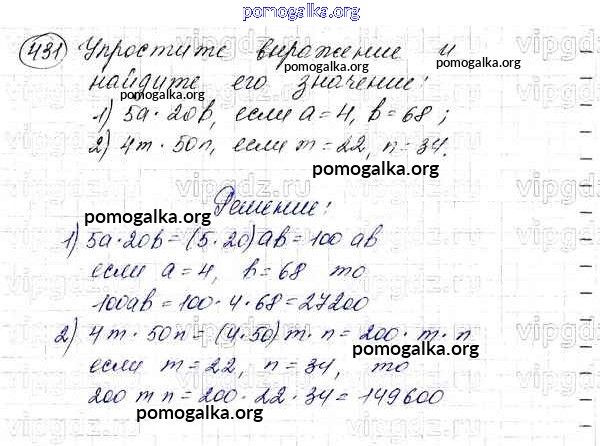 pomogalka.org
431 Упростите выражение и
pomogalka.org
найдите его значение:
pomogalka.org
1) 5a · 20b, если a = 4, b = 68;
2) 4m · 50n, если m = 22, n = 34.
pomogalka.org
vipgdz.ru
Решение:
pomogalka.org
1) 5a · 20b = (5 · 20)ab = 100 ab
если a = 4, b = 68 то
100ab = 100 · 4 · 68 = 27200
2) 4m · 50n = (4 · 50) m · n = 200 · m · n
pomogalka.org
если m = 22, n = 34, то
200 m n = 200 · 22 · 34 = 149600
pomogalka.org